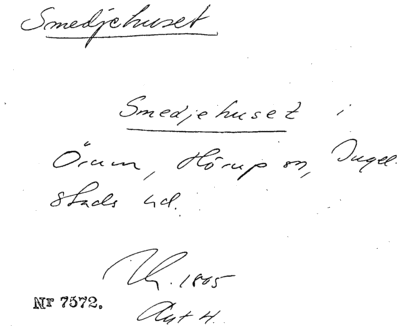 Smedjehuset
Smedjehuset i
Örum, Hörup sn, Ingel-
stads hd.
1805
Nr 7572.
Akt 4.